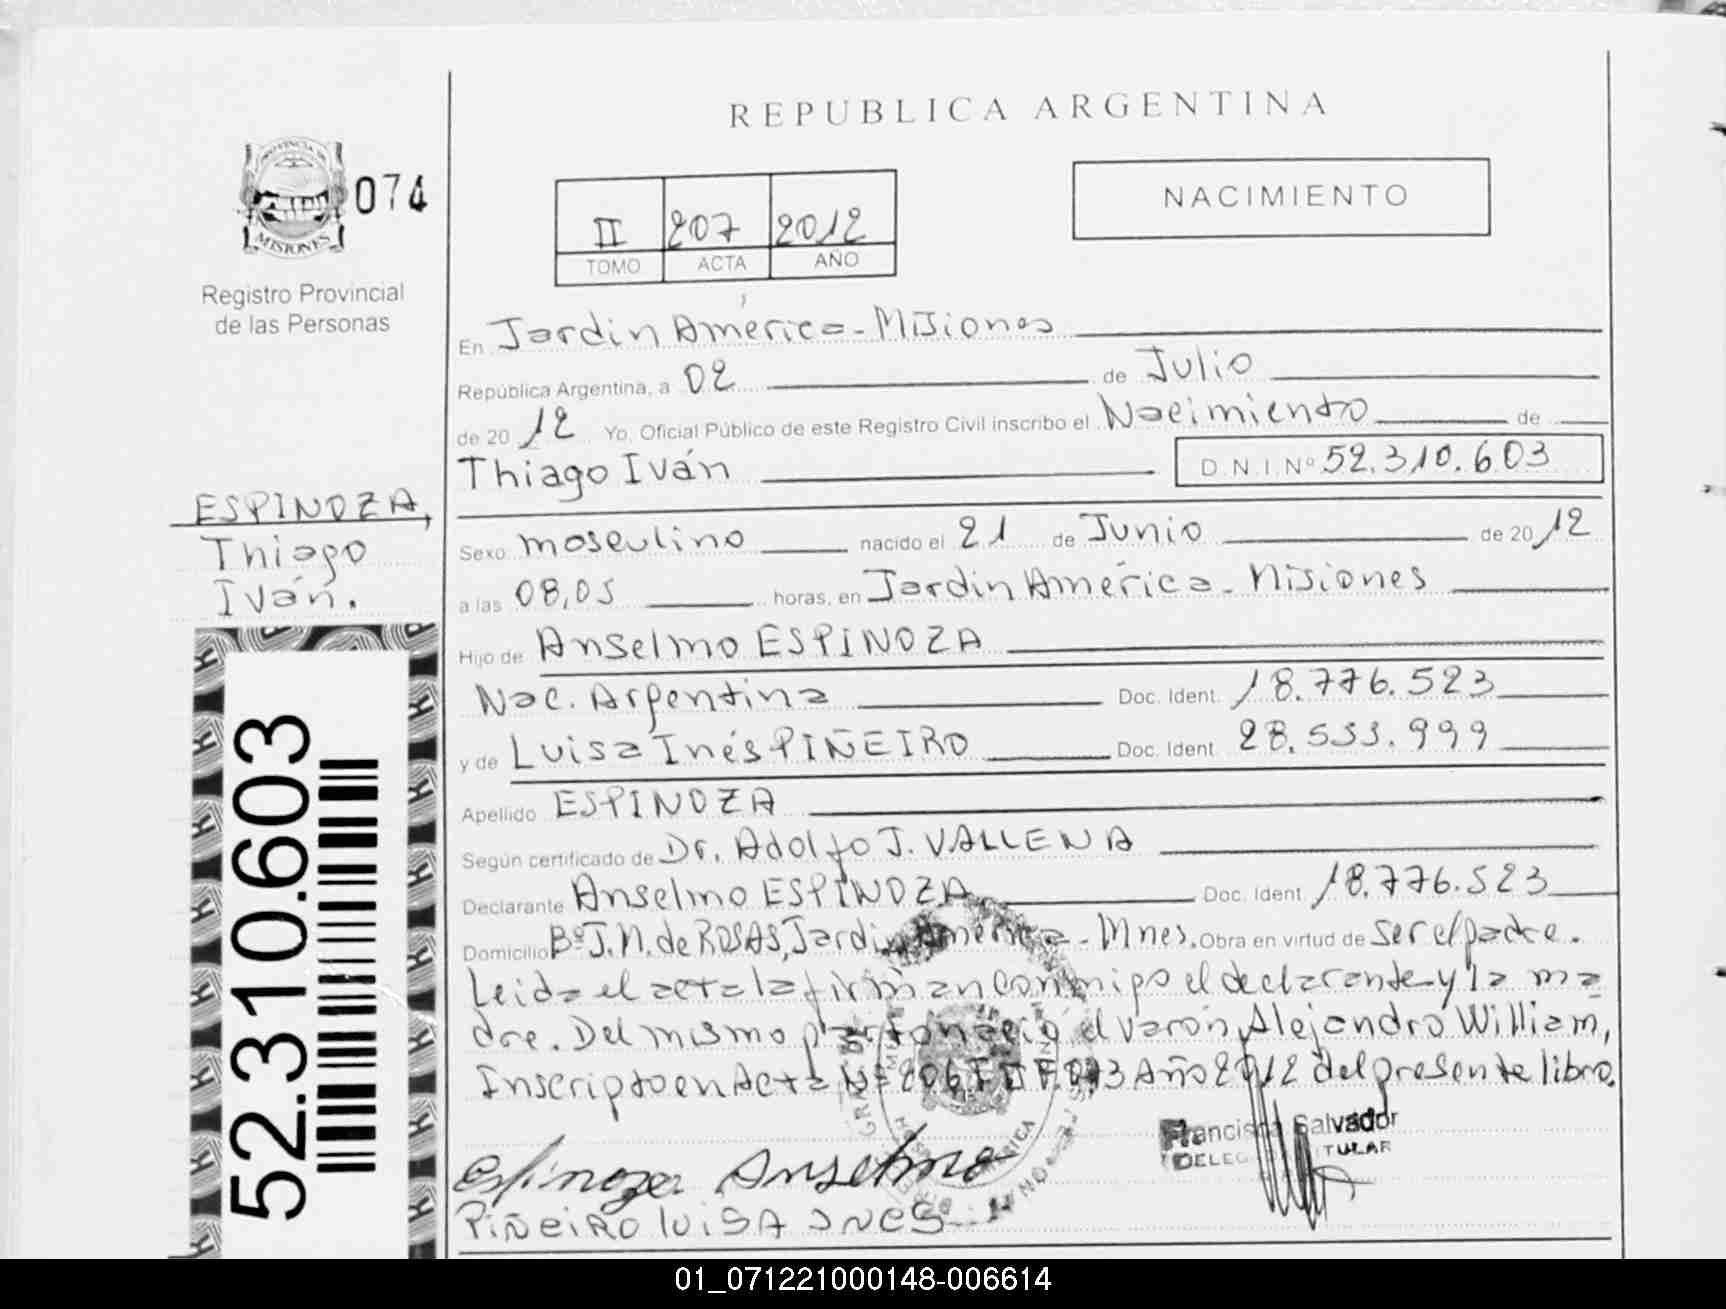 REPUBLICA ARGENTINA
PROVINCIA DE
MISIONES
074
Registro Provincial
de las Personas
II 207 2012
TOMO ACTA AÑO
NACIMIENTO
En Jardin América - Misiones
República Argentina, a 02 de Julio
de 20 12 Yo, Oficial Público de este Registro Civil inscribo el Nacimiento de
Thiago Iván D.N.I.Nº 52.310.603
ESPINOZA,
Thiago
Iván.
Sexo masculino nacido el 21 de Junio de 20 12
a las 08,05 horas, en Jardin América - Misiones
Hijo de Anselmo ESPINOZA
Nac. Argentina Doc. Ident. 18.776.523
y de Luisa Inés PIÑEIRO Doc. Ident. 28.533.999
Apellido ESPINOZA
Según certificado de Dr. Adolfo J. VALLENA
Declarante Anselmo ESPINOZA Doc. Ident. 18.776.523
Domicilio Bº J.M. de ROSAS, Jardin América - Mnes. Obra en virtud de ser el padre.
Leida el acta la firman conmigo el declarante y la ma
dre. Del mismo parto nació el varón Alejandro William,
Inscripto en Acta Nº 206 T II F. 073 Año 2012 del presente libro.
Francisco Salvador
TITULAR
Espinoza Anselmo
PIÑEIRO LUISA INES
52.310.603
01_071221000148-006614